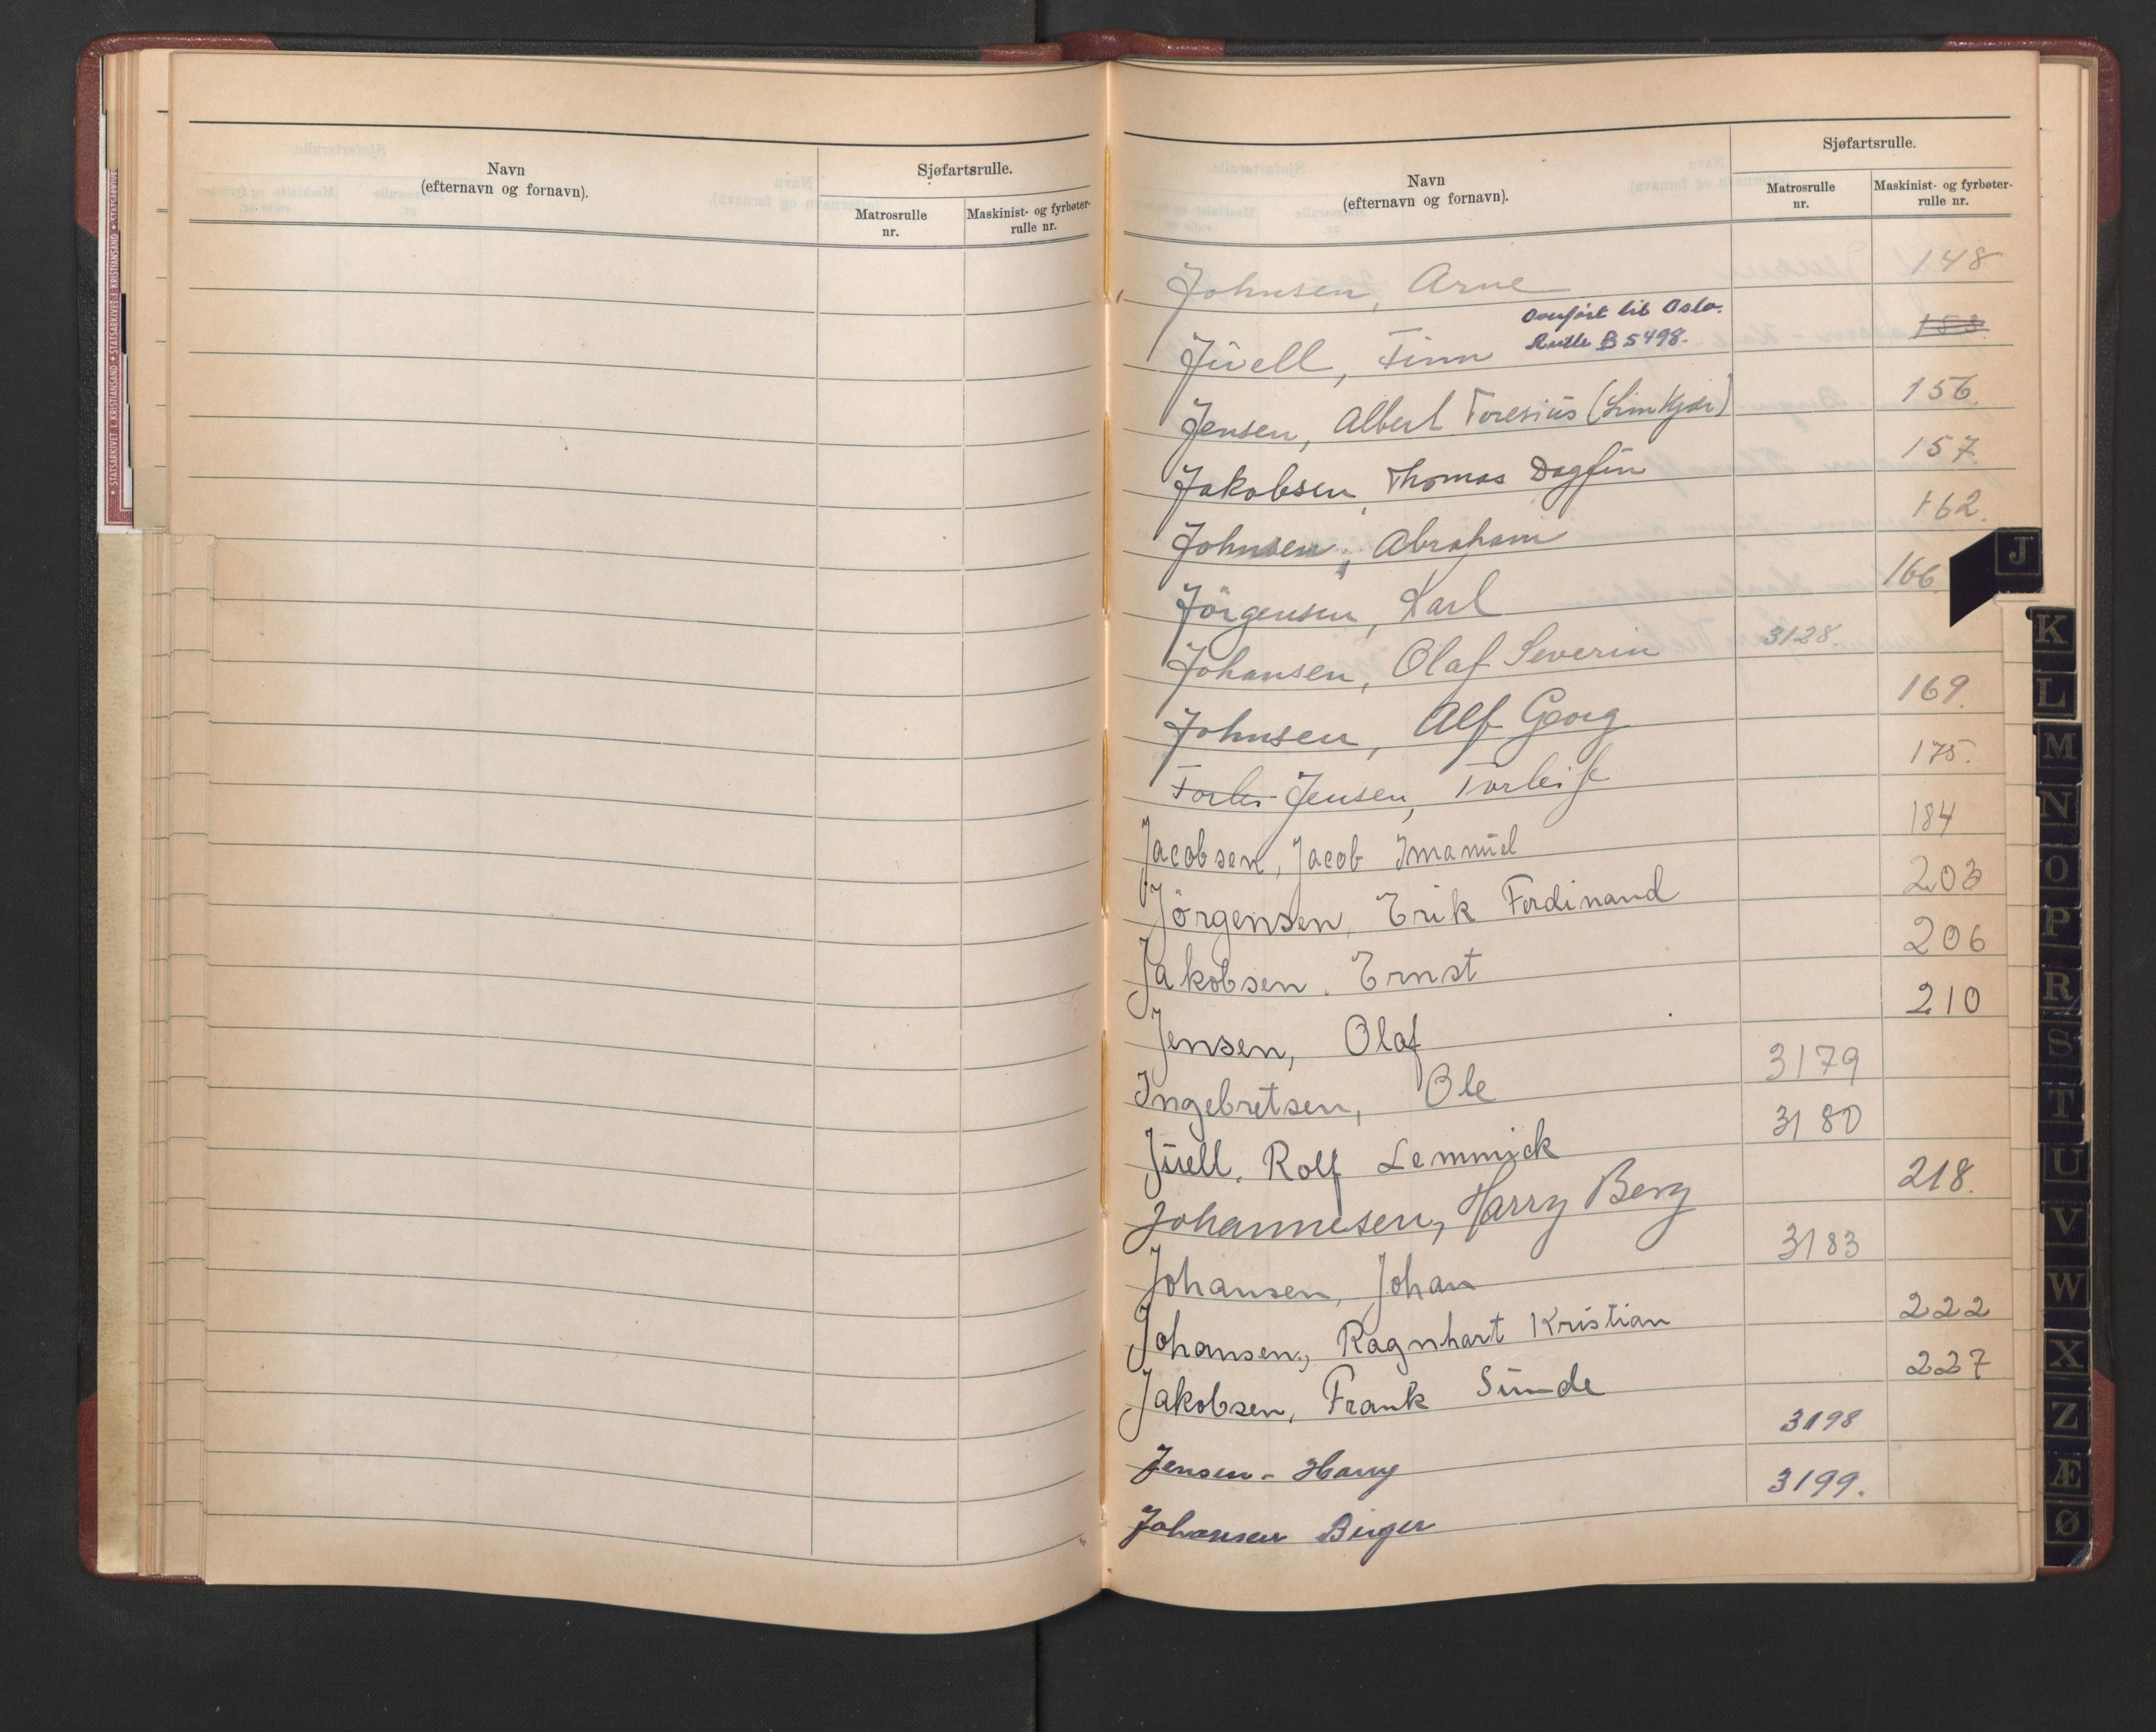 Navn
(efternavn og fornavn).
Sjøfartsrulle.
Matrosrulle
nr.
Maskinist- og fyrbøter-
rulle nr.
• STATSARKIVET I KRISTIANSAND • STATSARKIVET I KRISTIANSAND • STATSARKIVET
Navn
(efternavn og fornavn).
Sjøfartsrulle.
Matrosrulle
nr.
Maskinist- og fyrbøter-
rulle nr.
Johnsen, Arne 148
Overført til Oslo.
Rulle B 5498.
Jüell, Finn 153
Jensen, Albert Toresius (Limkjær) 156.
Jakobsen, Thomas Dagfin 157.
Johnsen, Abraham 162.
Jörgensen, Karl 166.
Johansen, Olaf Severin 3128.
Johnsen, Alf Georg 169.
Torlei Jensen, Torleif 175.
Jacobsen, Jacob Imanuel 184
Jörgensen, Erik Ferdinand 203
Jakobsen, Ernst 206
Jensen, Olaf 210
Ingebretsen, Ole 3179
Jüell, Rolf Lemmick 3180
Johannesen, Harry Berg 218.
Johansen, Johan 3183
Johansen, Ragnhart Kristian 222
Jakobsen, Frank Sunde 227
Jensen - Harry 3198
Johansen Birger 3199.
J
K
L
M
N
O
P
R
S
T
U
V
W
X
Z
Æ
Ø